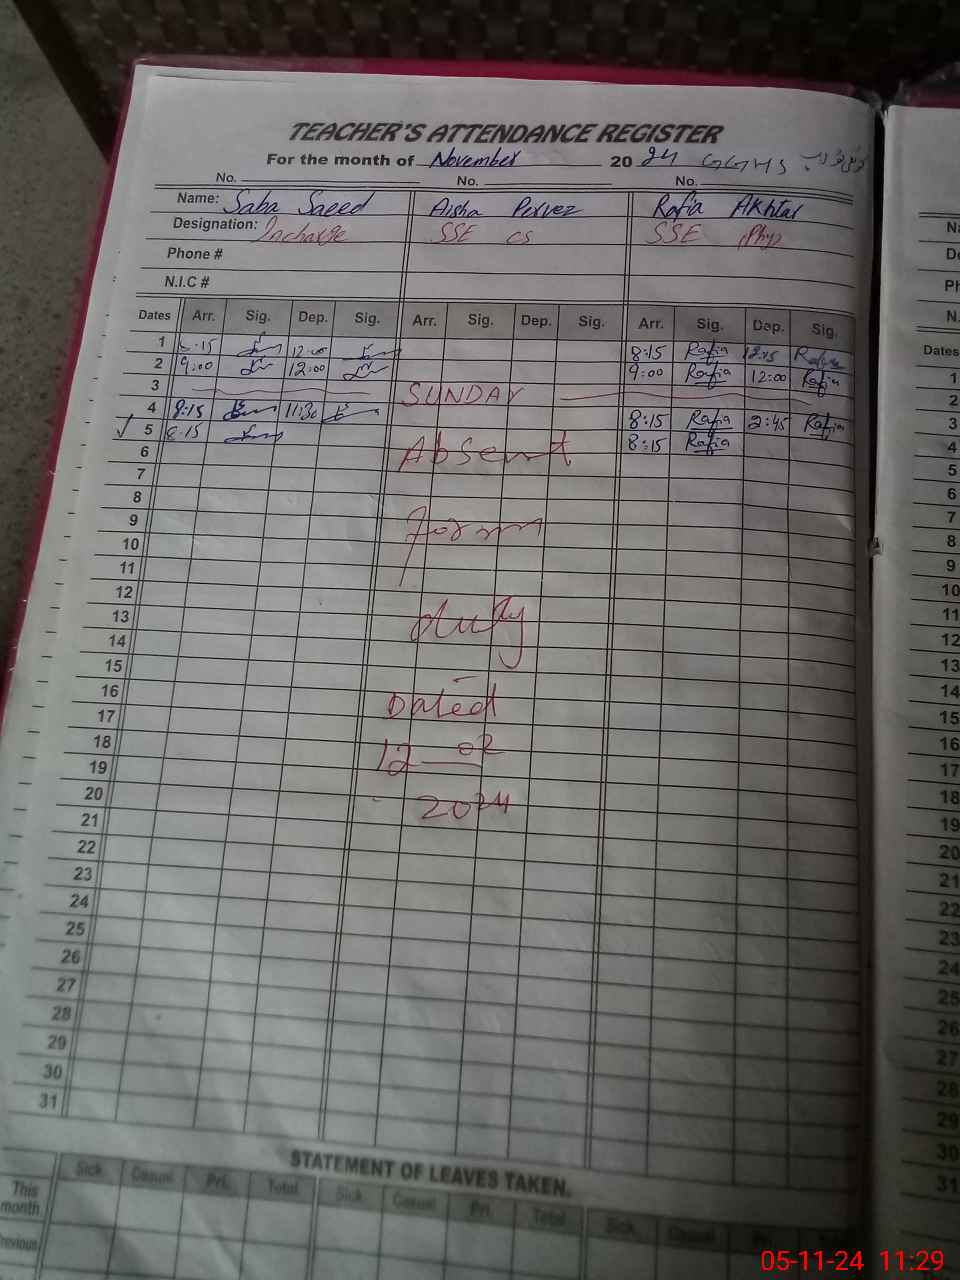 TEACHER'S ATTENDANCE REGISTER
For the month of November 2024 GGHS
No. No. No.
Name: Saba Saeed Aisha Pervez Rafia Akhtar
Designation: Incharge SSE CS SSE (Phy)
Phone #
N.I.C #
Dates Arr. Sig. Dep. Sig. Arr. Sig. Dep. Sig. Arr. Sig. Dep. Sig.
1 8:15 12:00 8:15 Rafia 12:15 Rafia
2 9:00 12:00 9:00 Rafia 12:00 Rafia
3 SUNDAY
4 8:15 11:30 8:15 Rafia 2:45 Rafia
✓ 5 8:15 8:15 Rafia
6 Absent
7
8
9 Form
10
11
12
13 duty
14
15
16 Dated
17
18 12-02
19
20 2024
21
22
23
24
25
26
27
28
29
30
31
STATEMENT OF LEAVES TAKEN.
Sick Casual Pri. Total Sick Casual Pri. Total Sick Casual
This month
Previous
Na
De
Ph
N.
Dates
1
2
3
4
5
6
7
8
9
10
11
12
13
14
15
16
17
18
19
20
21
22
23
24
25
26
27
28
29
30
31
05-11-24 11:29